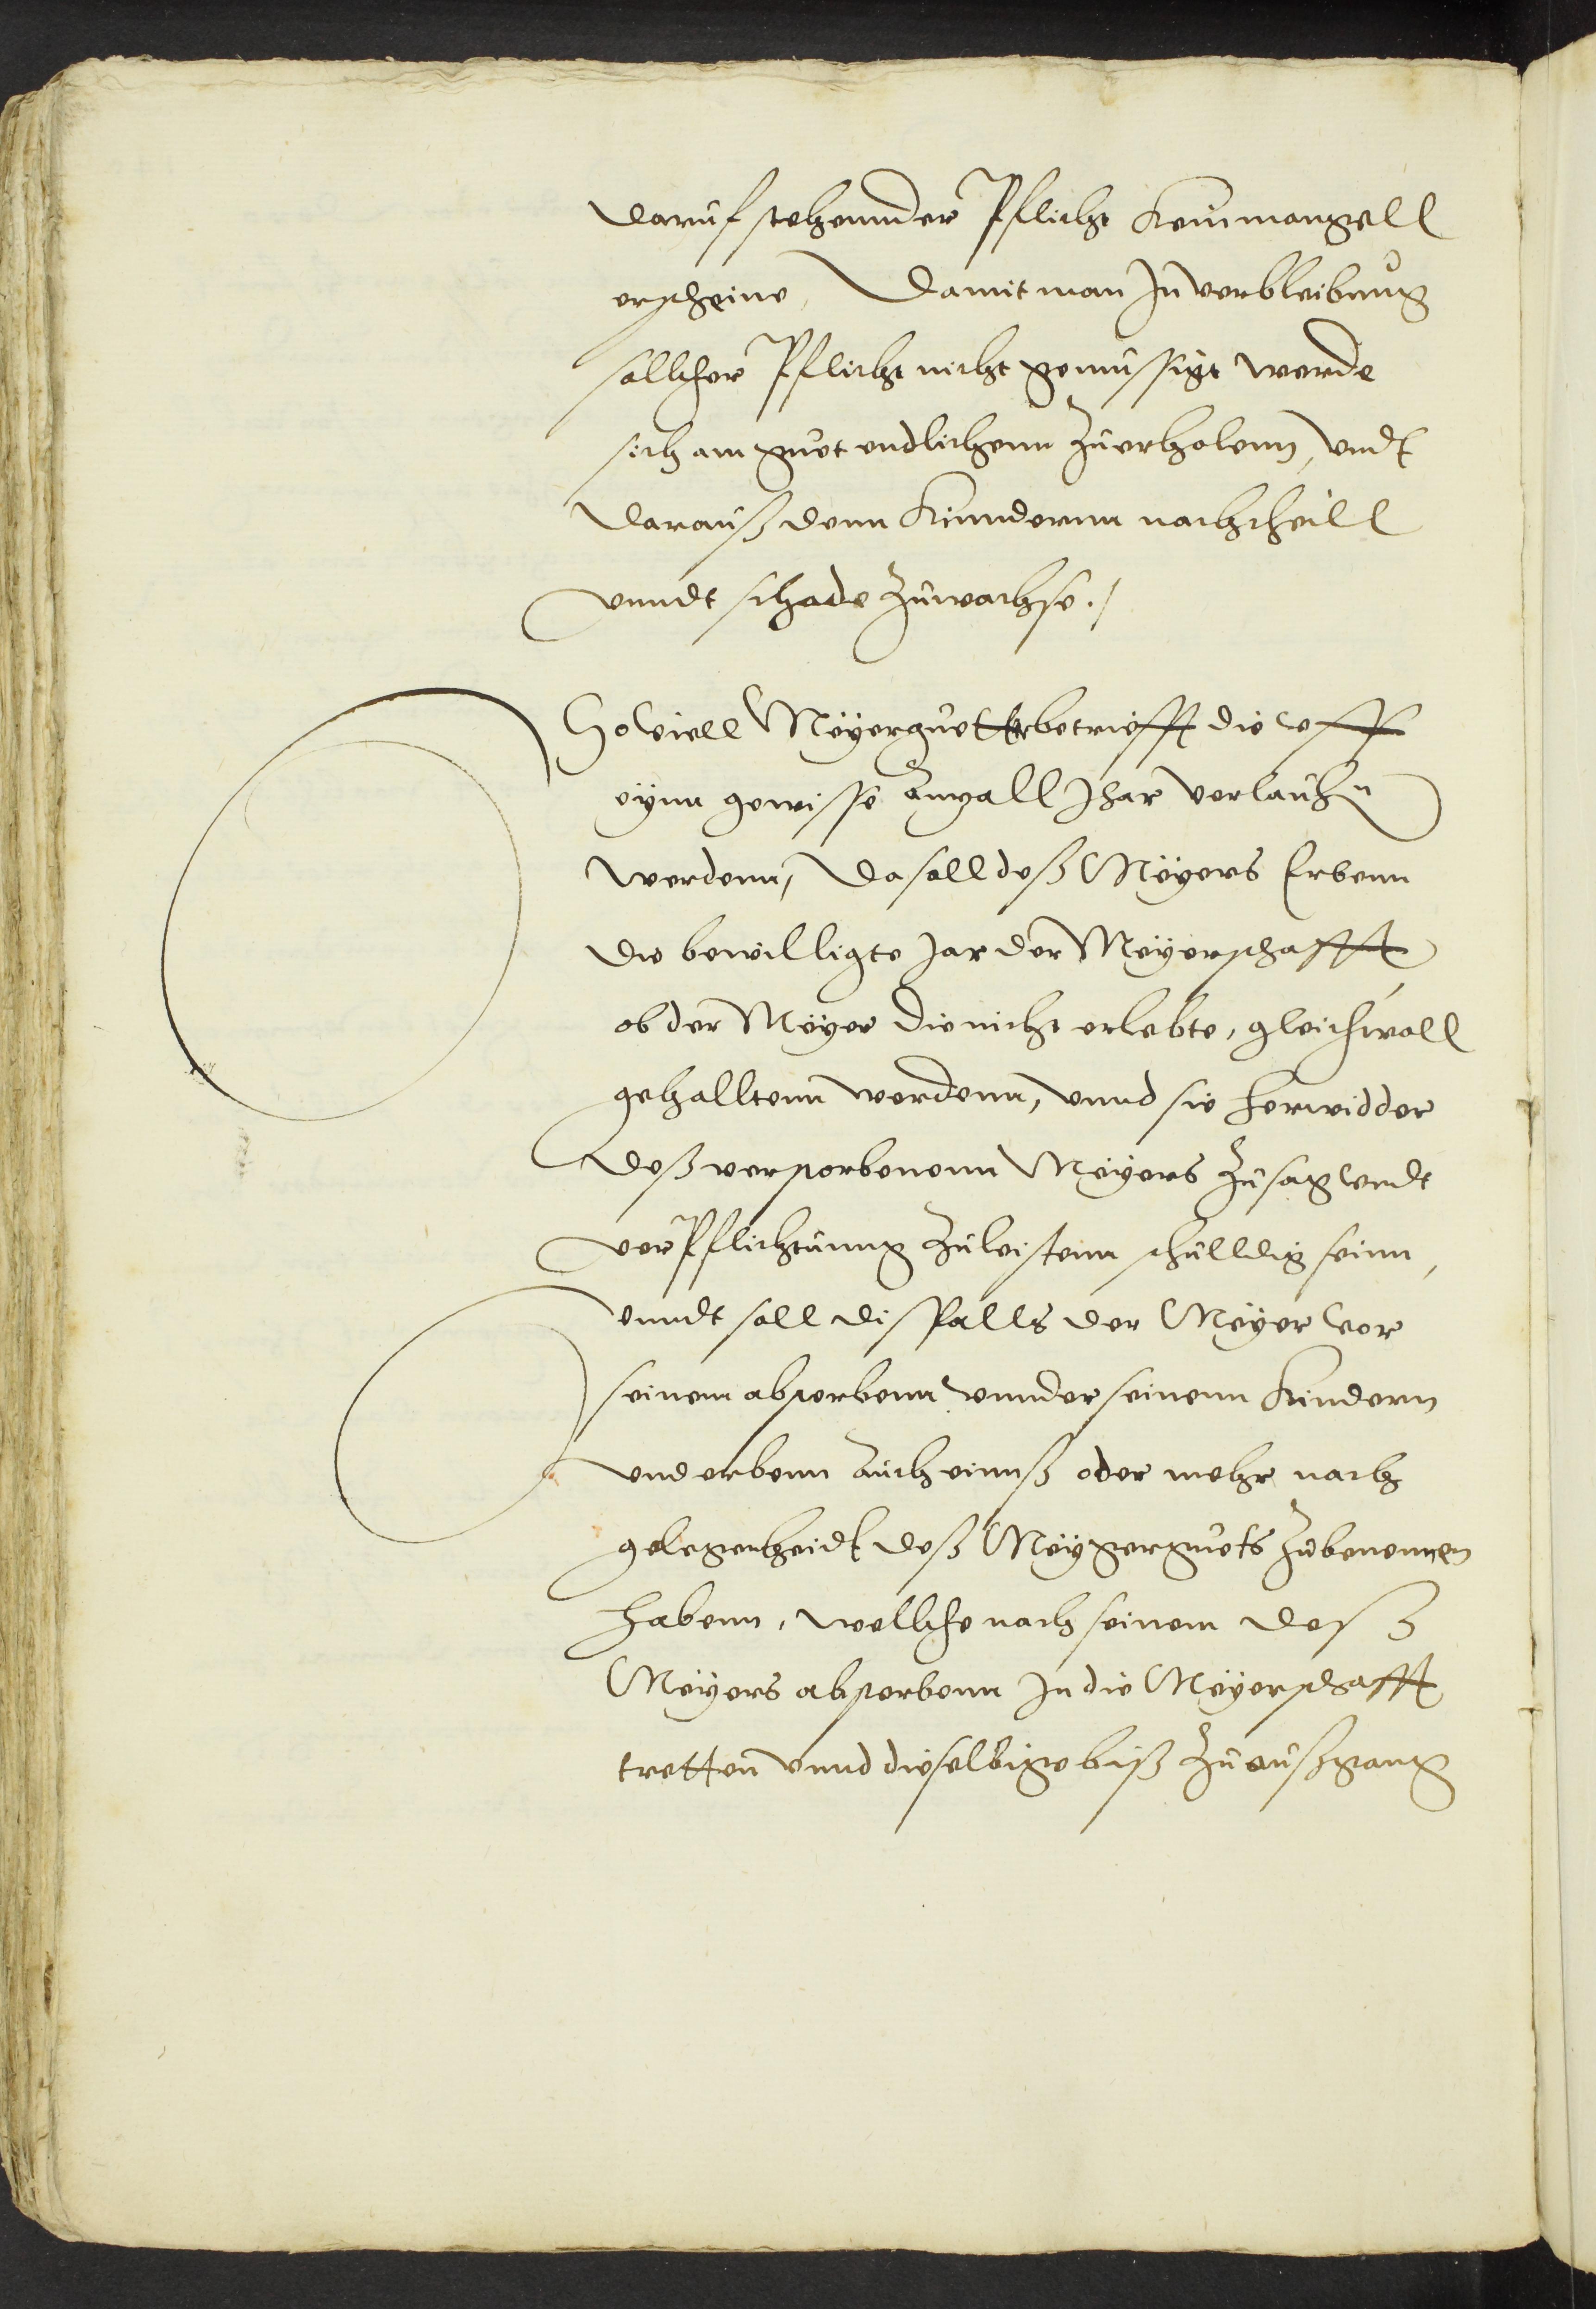 daruf stehennder Pflicht Kein mangell
erscheine, Damit man In verbleibung
sollcher Pflicht nicht gemüssigt werde
sich am guet endlichenn zuerholenn, undt
darauß denn Kinndernn nachtheill
vnndt schade zuwachse ./
So viell Meyerguetter betriefft die vff
eynn gewisse Anzall Jhar verlauhn
werdenn, Da soll deß Meyers Erbenn
die bewilligte Jar der Meyerschafft
ob der Meyer die nicht erlebte, gleichwoll
gehalltenn werdenn, vnnd sie herwidder
deß verstorbenenn Meyers zusag vndt
verPflichtunng zu leistenn schulldig seinn,
vnndt soll dißfalls der Meyer vor
seinem absterbenn vnnder seinenn Kindern
vnd erbenn auch einnß oder mehr nach
gelegenheidt deß Meygerguets zubenennen
habenn, wellche nach seinem deß
Meyers absterbenn In die Meyerschafft
tretten vnnd dieselbige biß zu außgang